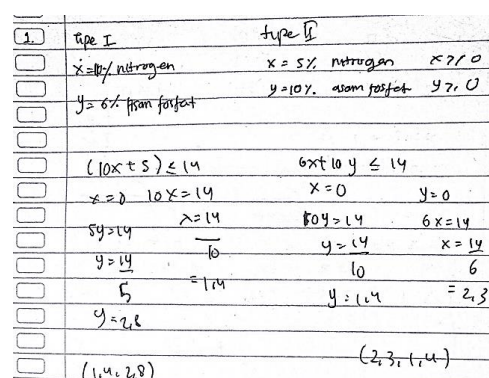 1. tipe I tupe II
x=10% nitrogen x = 5% nitrogen x ≥ 0
y = 6% Asam fosfat y = 10% asam fosfat y ≥ 0
(10x + 5) ≤ 14 6x + 10y ≤ 14
x = 0 10x = 14 x = 0 y = 0
5y = 14 x = 14/10 10y = 14 6x = 14
y = 14/5 = 1,4 y = 14/10 x = 14/6
y = 2,8 y = 1,4 = 2,3
(1,4, 2,8) (2,3, 1,4)